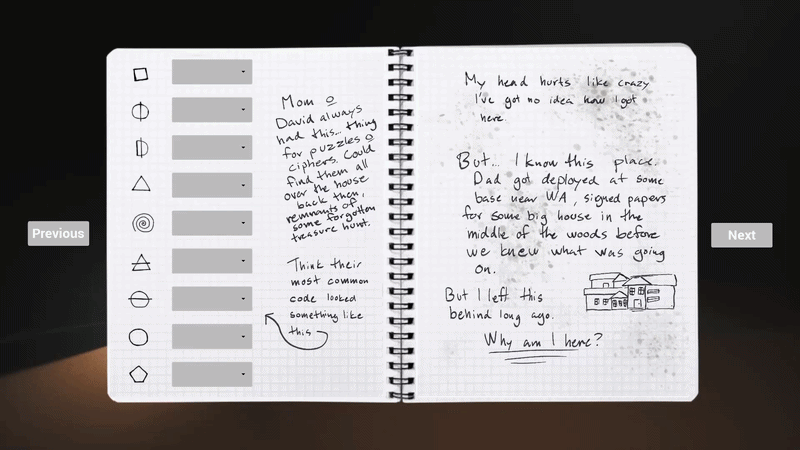 Mom &
David always
had this... thing
for puzzles &
ciphers. Could
find them all
over the house
back then,
remnants of
some forgotten
treasure hunt.
Think their
most common
code looked
something like
this
My head hurts like crazy
I've got no idea how I got
here.
But... I know this place.
Dad got deployed at some
base near WA, signed papers
for some big house in the
middle of the woods before
we knew what was going
on.
But I left this
behind long ago.
Why am I here?
Previous
Next